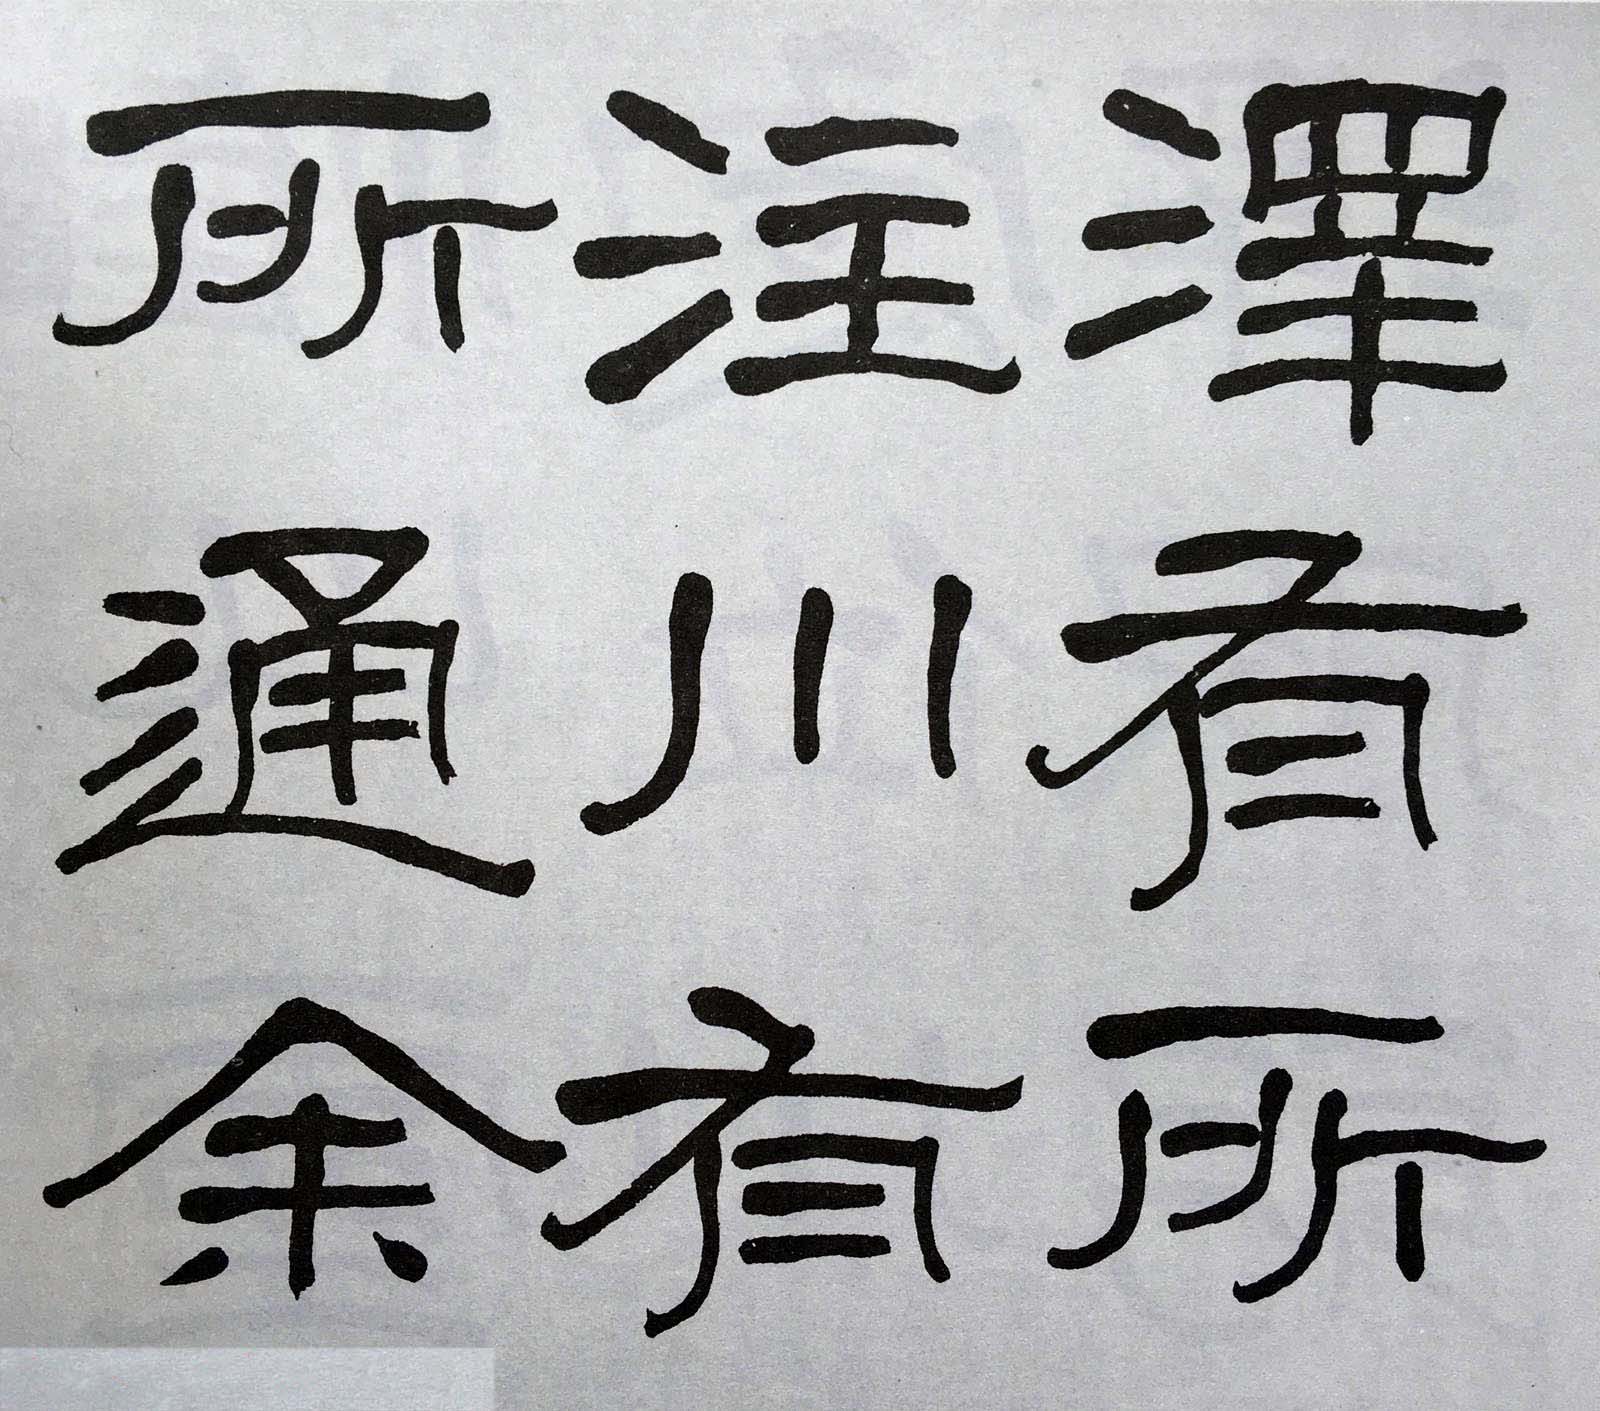 澤有所
注川有
所通余